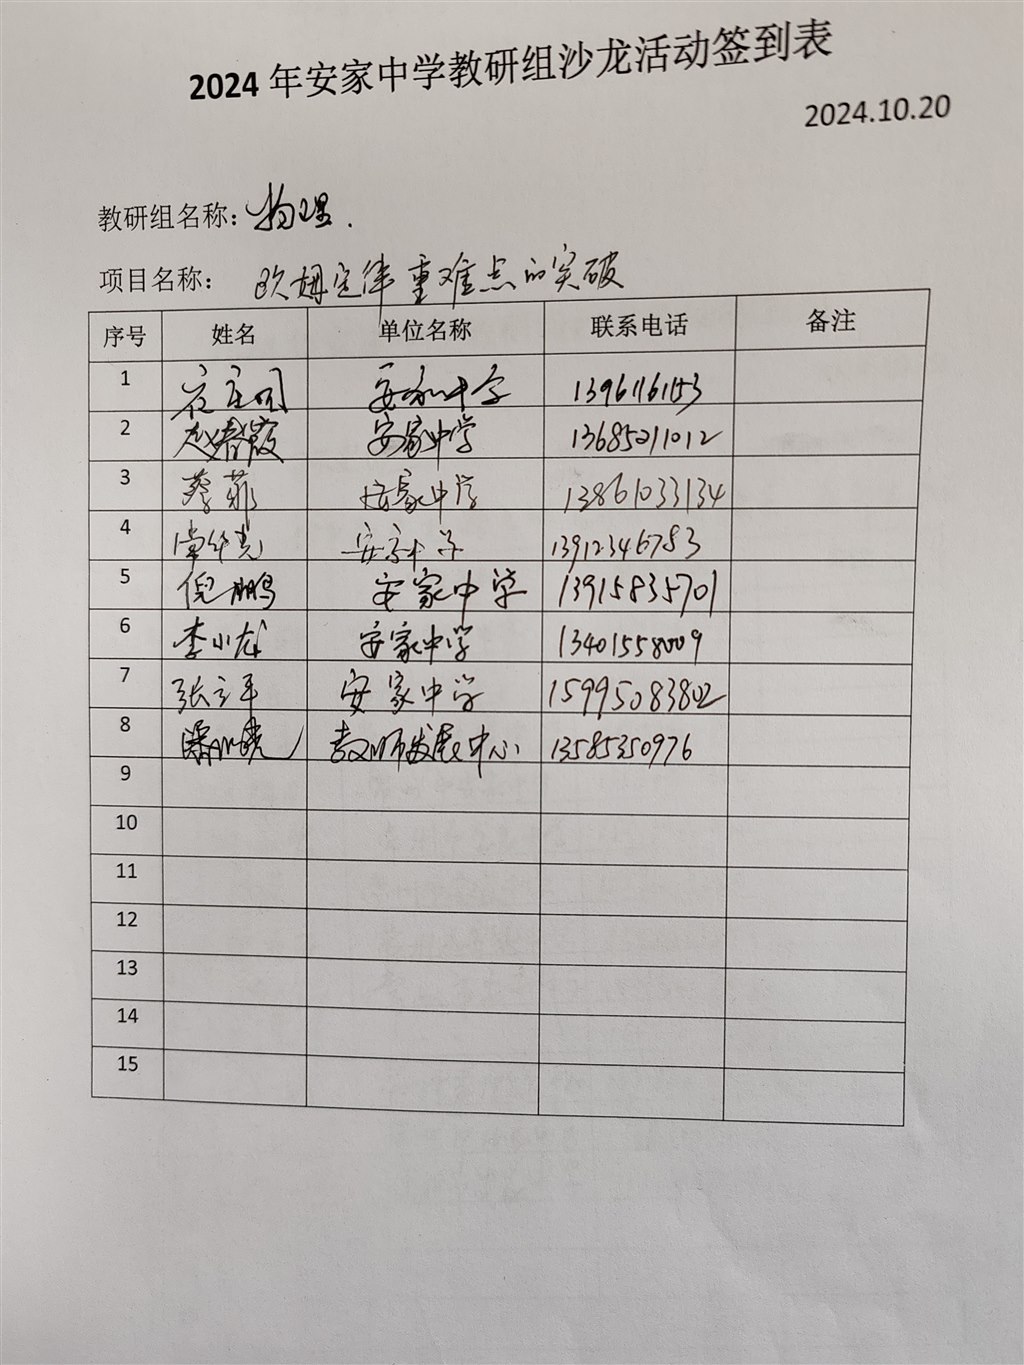 2024 年安家中学教研组沙龙活动签到表
2024.10.20
教研组名称：物理.
项目名称： 欧姆定律重难点的突破
序号 姓名 单位名称 联系电话 备注
1 安家中学
2 赵春霞 安家中学 13685211012
3 蔡菲 安家中学 13861033134
4 常华光 安家中学 13912346783
5 倪鹏 安家中学 13915835701
6 李小龙 安家中学 13401558009
7 张立平 安家中学 15995083802
8 教师发展中心 13585350976
9
10
11
12
13
14
15